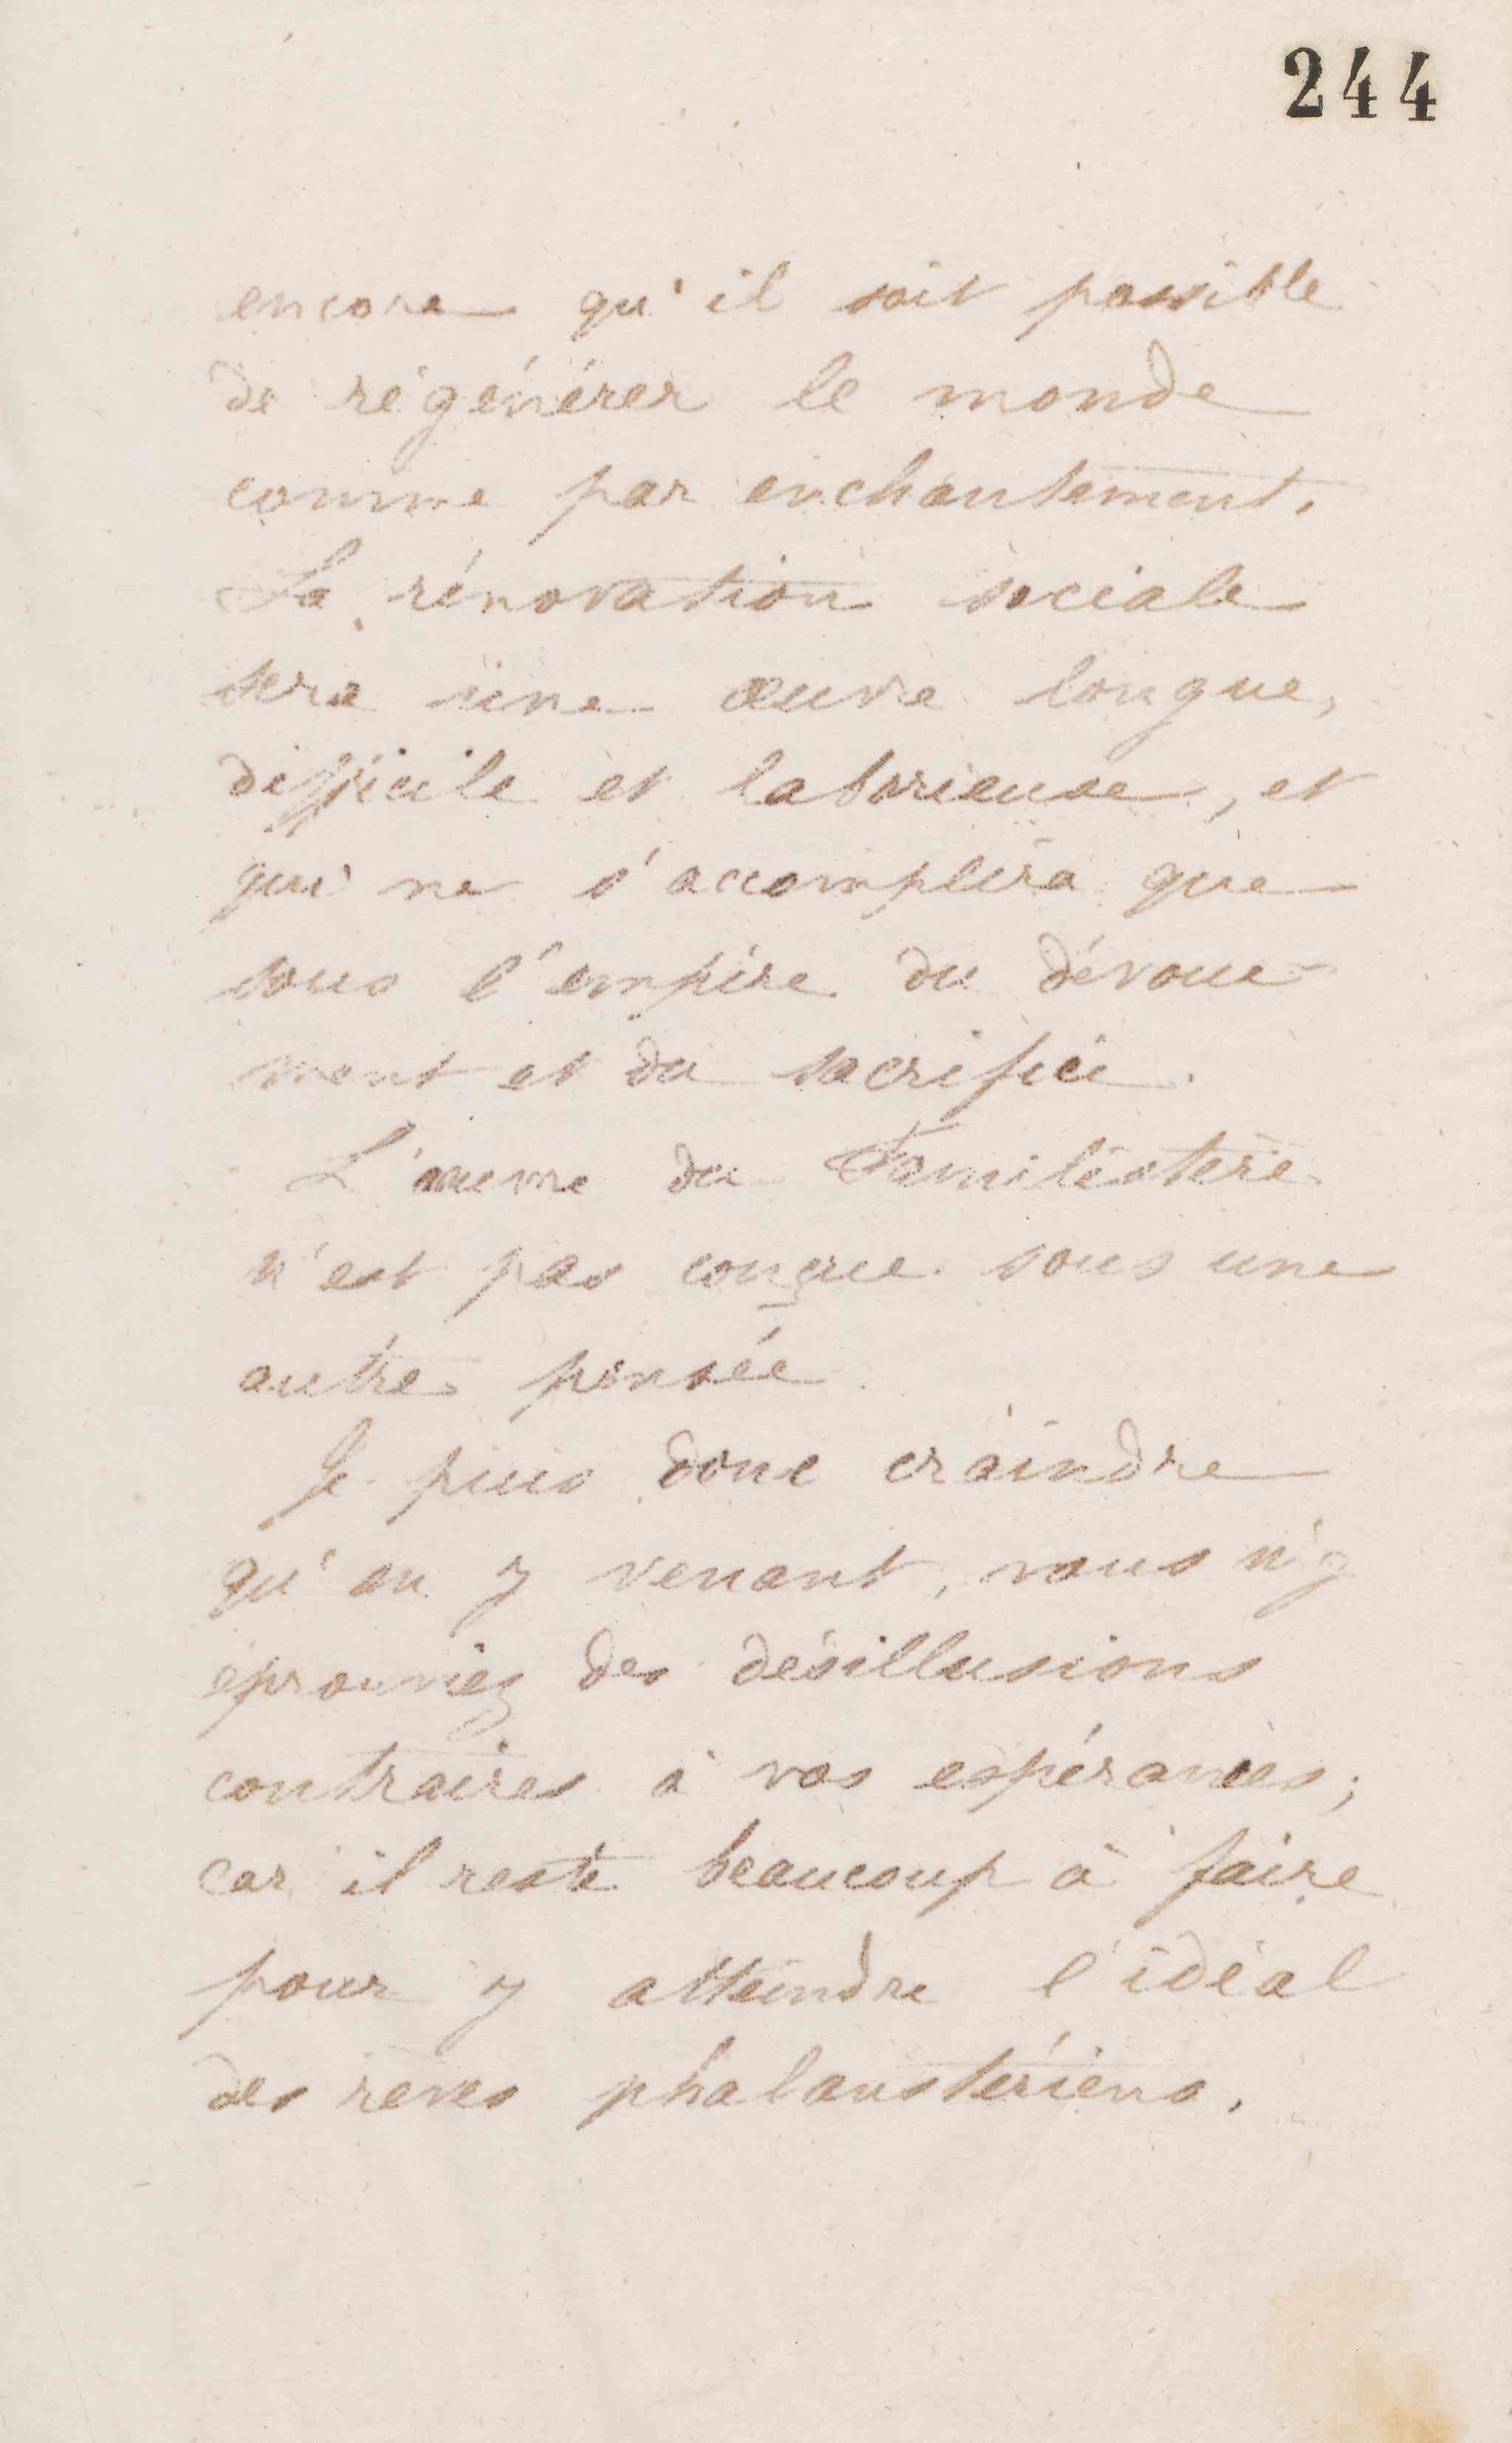 244
encore qu'il soit possible
de régénérer le monde
comme par enchantement.
La rénovation sociale
sera une œuvre longue,
difficile et laborieuse, et
qui ne s'accomplira que
sous l'empire du dévoue-
ment et du sacrifice.
L'œuvre du Familistère
n'est pas conçue sous une
autre pensée.
Je puis donc craindre
qu'en y venant, vous n'y
eprouviez des désillusions
contraires à vos espérances;
car il reste beaucoup à faire
pour y atteindre l'idéal
des reves phalanstériens.